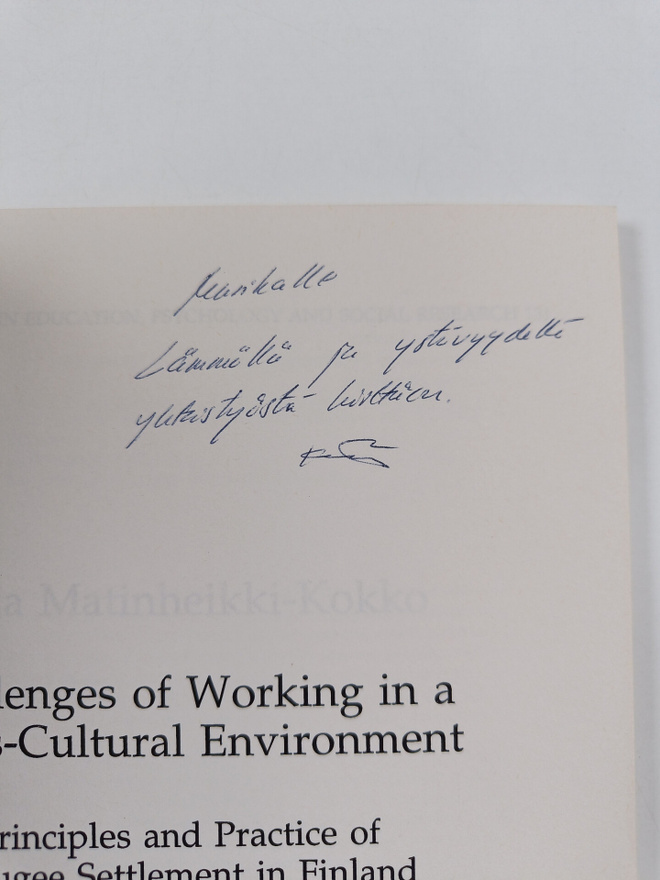 Marikalle
Lämmöllä ja ystävyydellä
yhteistyöstä kiittäen.
IN EDUCATION, PSYCHOLOGY AND SOCIAL RESEARCH
a Matinheikki-Kokko
lenges of Working in a
s-Cultural Environment
rinciples and Practice of
ugee Settlement in Finland